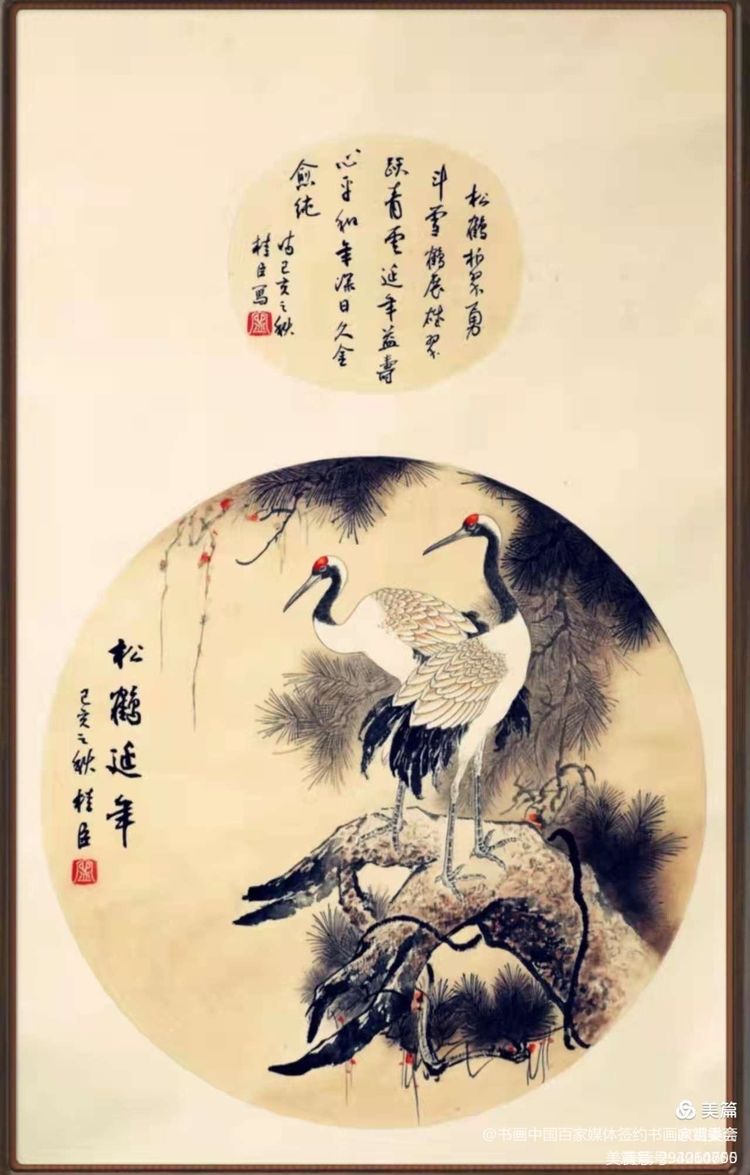 松鹤柏翠勇
斗雪鹤展雄翠
跃青云延年益壽
心平和年深日久金
愈纯
时己亥之秋
桂臣写
松鹤延年
己亥之秋桂臣
美篇
@书画中国百家媒体签约书画家
美篇号